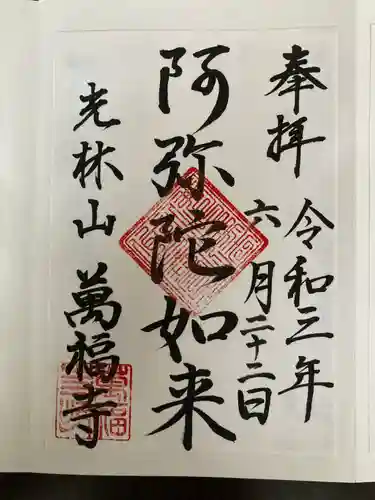 奉拝
令和三年
六月二十二日
阿弥陀如来
光林山
萬福寺